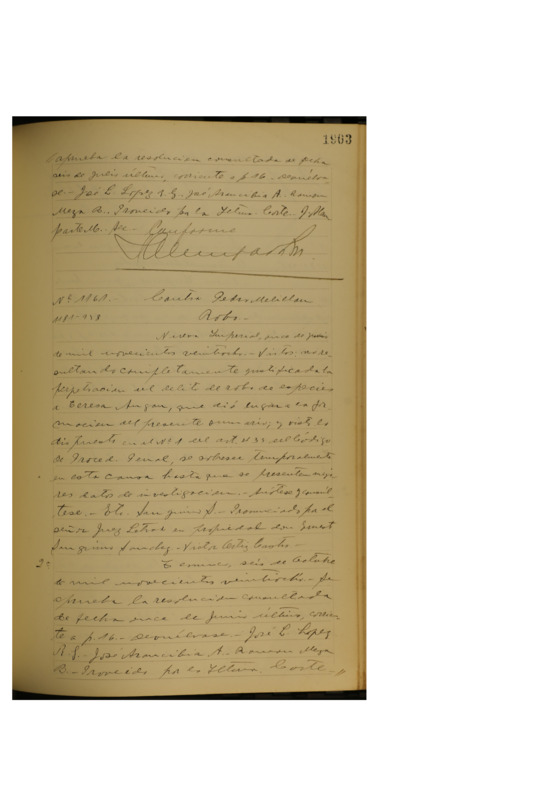 1903
aprueba la resolucion consultada de fecha
seis de julio último, corriente a f. 16. Devuélva
se.- José E. Lopez R. G. José Arancibia A. Roman
Mega B. Proveido por la Iltma. Corte. J.
Conforme
Nº 1861.- Contra Pedro Melillan
Robo.-
Nueva Imperial, once de junio
de mil novecientos veintiocho.- Vistos: no re
sultando completamente justificada la
perpetracion del delito de robo de especies
a Teresa que dió lugar a la for
macion del presente sumario, y visto lo
dispuesto en el del art 433 del Codigo
de Proced. Penal, se sobresee temporalmente
en esta causa hasta que se presenten mejo
res datos de investigacion.- Anótese y consúl
tese.- E. Sanguino S.- Pronunciado por el
señor Juez Letrado en propiedad don Ernest
Sanguino Sanchez.- Victor Ortiz Castro-
2º Temuco, seis de Octubre
de mil novecientos veintiocho.- Se
aprueba la resolucion consultada
de fecha once de Junio último, corrien
te a f. 16.- Devuélvase.- José E. Lopez
R. G.- José Arancibia A.- Roman Mega
B.- Proveido por la Iltma. Corte.-